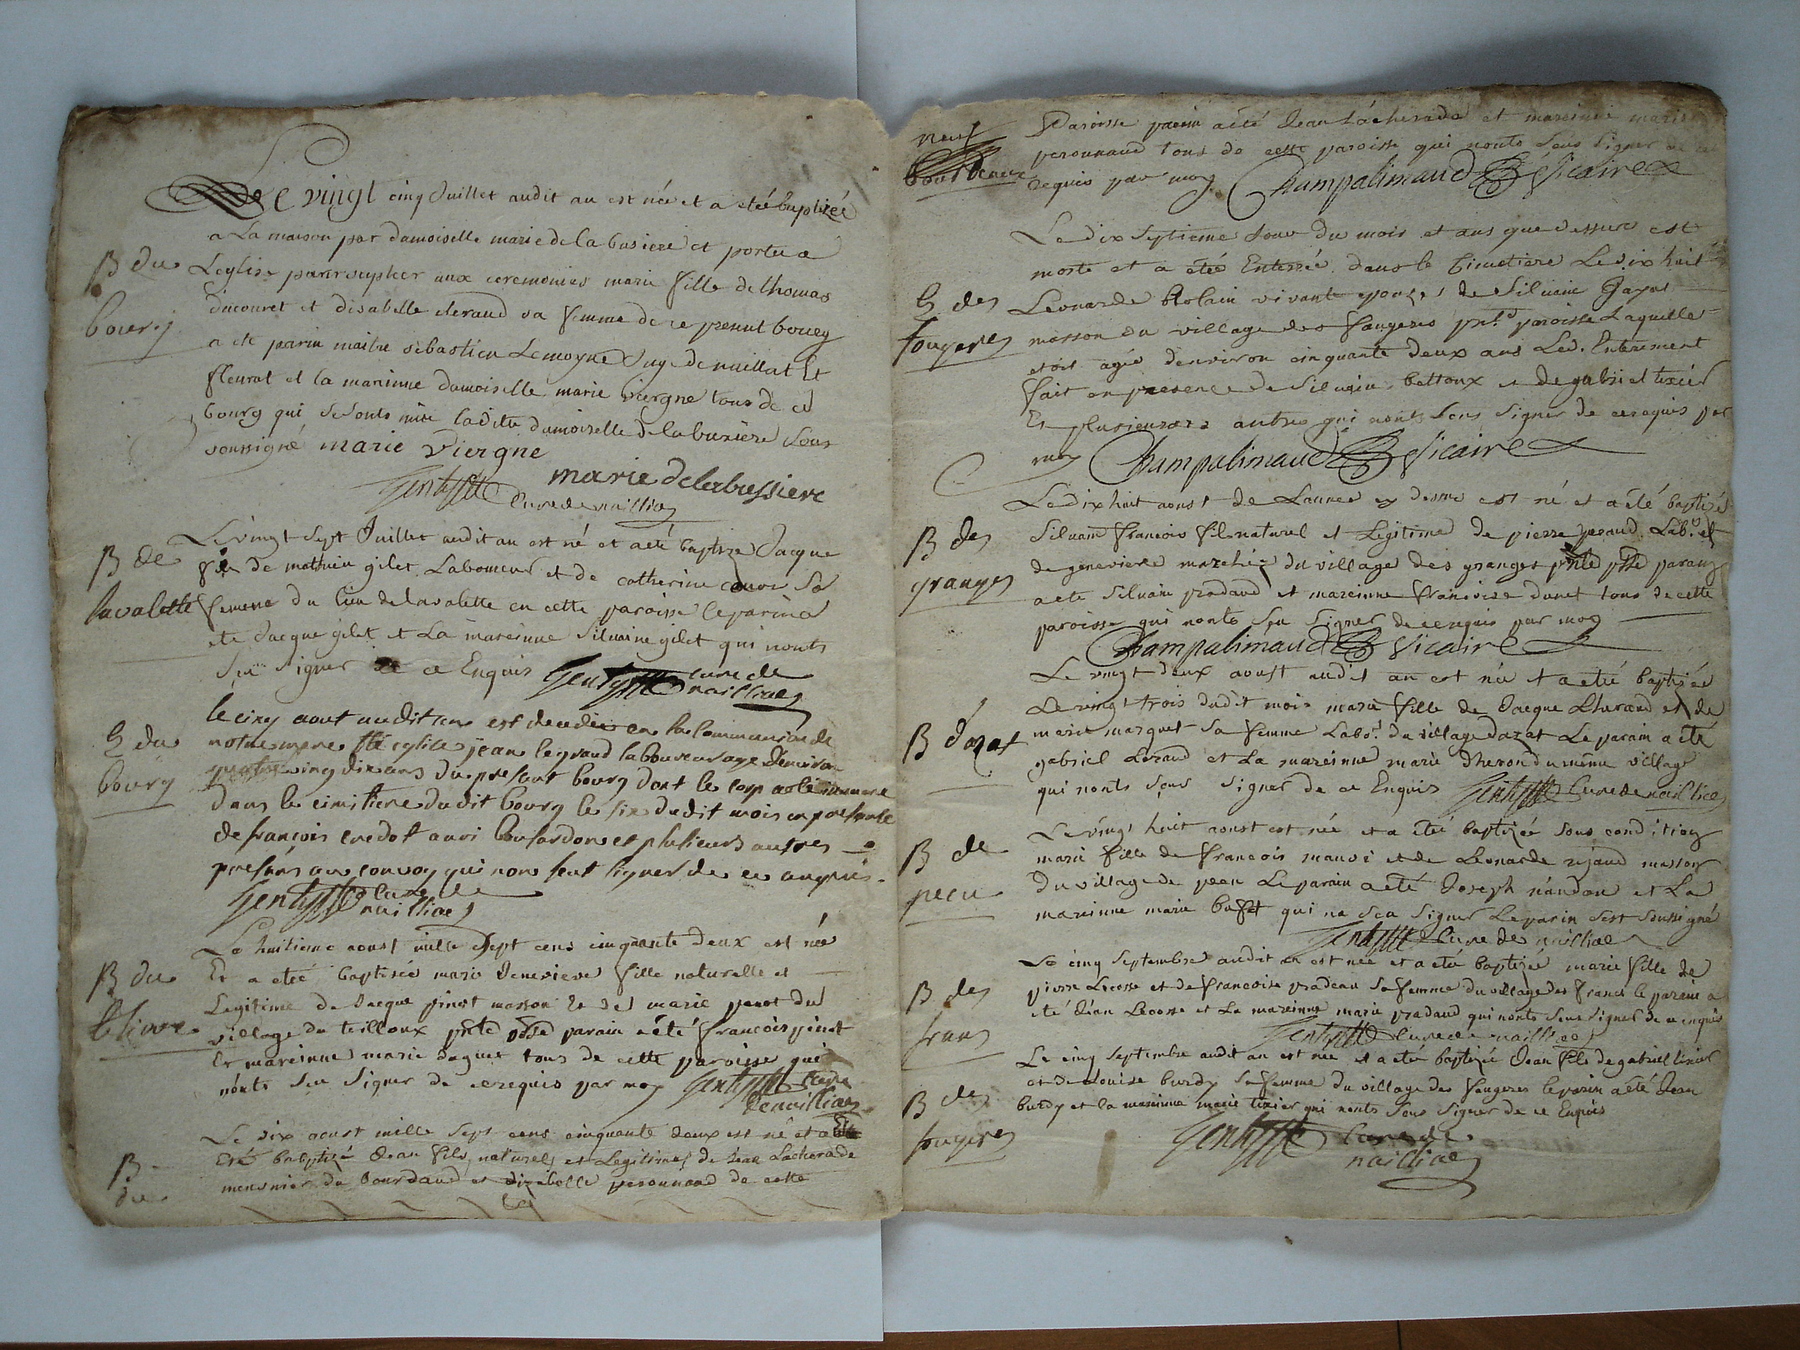 Le vingt cinq Juillet audit an est née et a eteé baptizeé
a La maison par damoiselle marie de la busiere et portée a
B du
Leglise pour supleer aux ceremonies marie fille de thomas
bourg
ducouret et disabelle sa femme de ce present bourg
a eté parin maitre sebastien Lemoyne Juge de naillat Et
fleurat et la marinne damoiselle marie viergne tous de ce
bourg qui ladite damoiselle de la buxiere sous
soussigné marie viergne
marie delabussiere
curé de naillac
Le vingt sept Juillet audit an est né et a eté baptize Jacque
B de
fils de mathieu gilet Laboureur et de catherine sa
lavalette
femme du lieu de lavalette en cette paroisse le parin a
ete Jacque gilet et La mareinne silvaine gilet qui nonts
Sçu signer de ce Enquis curé de
naillac
le cinq aout audit an est decedée en la Communion de
E du
notre mere Ste eglise jean legrand laboureur age denviron
bourg
quatre vingt dix ans du present bourg dont le corp a eté inhumé
dans le cimitiere dudit bourg le six dudit mois en presance
de françois et plusieurs autres
presens au convoy qui non seut signer de ce anquis
curé de
naillac
Le huitieme aoust mille sept cens cinquante deux est née
B du
Et a eteé baptisée marie Genevieve fille naturelle et
Legitime de Jacque pinot masson et de marie du
village du teilloux pnte psse parain a eté francois pinot
Et mareinne marie daguet tous de cette paroisse qui
nonts sçu signer de ce requis par moy curé
de naillac
Le dix aoust mille sept cens cinquante deux est né et a
B
Eté babptizé Jean fils naturel et Legitime de Jean Lacherade
du
meusnier du et dizabelle peronnaud de cette
neuf
Paroisse parain a eté Jean Lacherade et mareinne marie
peronnaud tous de cette paroisse qui nonts sçus signer de ce
requis par moy Champalimaud Vicaire
Le dix septieme Jour du mois et ans que dessus est
morte et a eteé Enterrée dans le Cimetiere Le dix huit
E des
Leonarde vivante epouse de Silvain
fougeres
masson du village des faugeres pnte paroisse Laquelle
etoit agée denviron cinquante deux ans Led. Enterement
fait en presence de Silvain bettoux et de gabriel texier
Et plusieurs autres qui nonts sçus signer de ce requis par
moy Champalimaud Vicaire
Le dix huit aoust de Lannee cy dessus est né et a eté baptisé
B des
Silvain francois fils naturel et Legitime de pierre Labr. et
granges
de genevieve du village des granges pnte psse parain
a ete Silvain pradaud et mareinne francoise tous de cette
paroisse qui nonts sçu signer de ce requis par moy
Champalimaud Vicaire
Le vingt deux aoust audit an est née et a eteé baptizée
Le vingt trois dudit mois marie fille de Jacque et de
B dazat
marie marquet sa femme Labr. du village dazat Le parain a eté
gabriel et La mareinne marie du même village
qui nonts sçus signer de ce Enquis Curé de naillac
Le vingt huit aoust est née et a eté baptizée sous condition
B de
marie fille de francois et de Leonarde masson
du village de Le parain a eté Joseph nandon et La
mareinne marie qui na sçu signer Le parin sest soussigné
curé de naillac
Le cinq septembre audit an est née et a eté baptizée marie fille de
B des
pierre Lecosse et de francoise pradeau sa femme du village des francs le parain a
frans
eté Jean Lecosse et La mareinne marie pradaud qui nonts sçus signer de ce enquis
curé de naillac
Le cinq septembre audit an est née et a eté baptizée Jean fils de gabriel texier
B des
et de Louise burdy sa femme du village des faugeres le parin a eté Jean
fougeres
burdy et la mareinne marie texier qui nonts sçus signer de ce Enquis
curé de
naillac